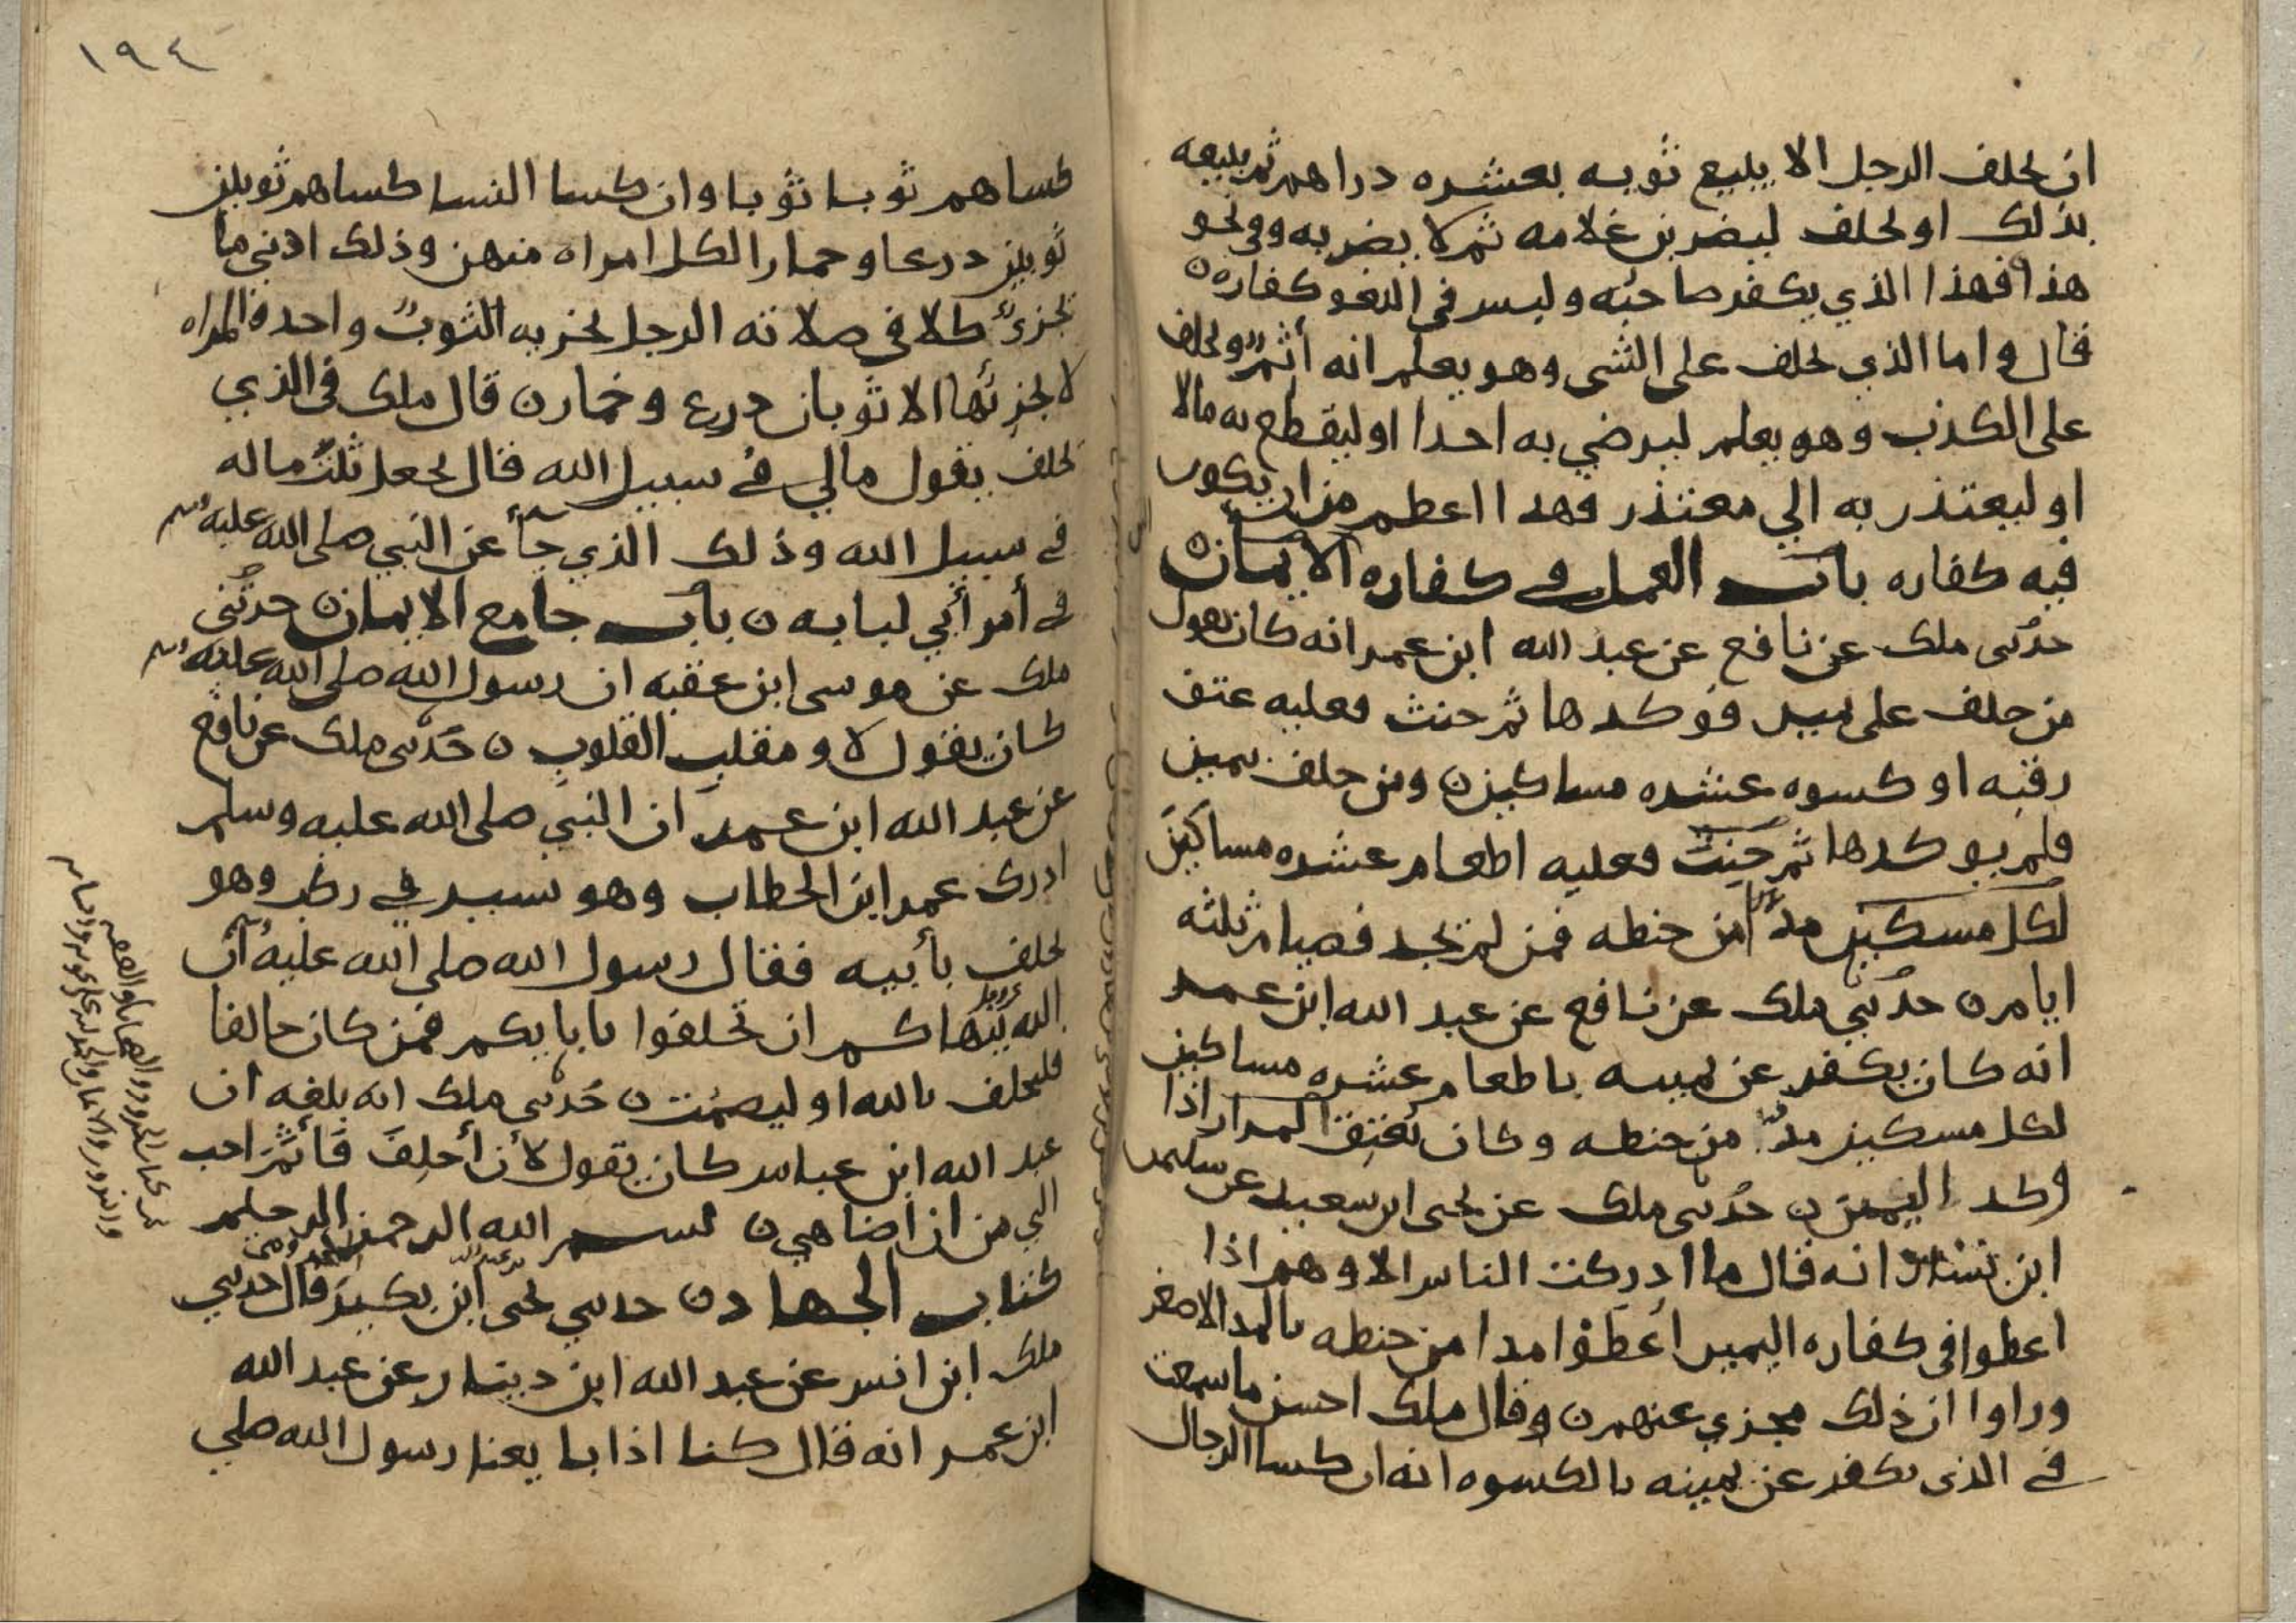 ان يحلف الرجل الا يبيع ثوبه بعشره دراهم ثم يبيعه
بذلك او يحلف ليضربن غلامه ثم لا يضربه ونحو
هذا فهذا الذي يكفر صاحبه وليس في اللغو كفاره ن
قال واما الذي يحلف على الشى وهو يعلم انه أثم ويحلف
على الكذب وهو يعلم ليرضي به احدا او ليقطع به مالا
او ليعتذر به الي معتذر فهدا اعظم من ان يكون
فيه كفاره باب العمل في كفاره الايمان ن
حدثنى ملك عن نافع عن عبد الله ابن عمر انه كان يقول
من حلف على يمين فوكدها ثم حنث فعليه عتق
رقبه او كسوه عشره مساكين ن ومن حلف بيمين
فلم يوكدها ثم حنث فعليه اطعام عشره مساكين
لكل مسكين مد من حنطه فمن لم يجد فصيام ثلثه
ايام ن حدثني ملك عن نافع عن عبد الله ابن عمر
انه كان يكفر عن يمينه باطعام عشره مساكين
لكل مسكين مد من حنطه وكان يعتق المرار اذا
وكد اليمين ن حدثنى ملك عن يحى ابن سعيد عن سليمن
ابن يسار انه قال ما ادركت الناس الا وهم اذا
اعطوا في كفاره اليمين اعطوا مدا من حنطه بالمد الاصغر
وراوا ان ذلك مجزي عنهم ن وقال ملك احسن ما سمعت
في الذى يكفر عن يمينه بالكسوه انه ان كسا الرجال
١٩٤
كساهم ثوبا ثوبا وان كسا النسا كساهم ثوبين
ثوبين درعا وخمارا لكل امراه منهن وذلك ادني ما
يجزئ كلا في صلاته الرجل يجزيه الثوب واحد والمراه
لا يجزئها الا ثوبان درع وخمار ن قال ملك في الذي
يحلف يقول مالي في سبيل الله قال يجعل ثلث ماله
في سبيل الله وذلك الذي جأ عن النبي صلى الله عليه وسلم
في أمر أبي لبابه ن باب جامع الايمان ن حدثني
ملك عن موسى ابن عقبه ان رسول الله صلى الله عليه وسلم
كان يقول لا ومقلب القلوب ن حدثنى ملك عن نافع
عن عبد الله ابن عمر ان النبي صلى الله عليه وسلم
ادرك عمر ابن الخطاب وهو يسير في ركب وهو
يحلف بأبيه فقال رسول الله صلى الله عليه ان
الله ينهاكم ان تحلفوا بابايكم فمن كان حالفا
فليحلف بالله او ليصمت ن حدثني ملك انه بلغه ان
عبد الله ابن عباس كان يقول لأن أحلف فأثم احب
الي من ان اضاهي ن بسم الله الرحمن الرحيم
كتاب الجهاد ن حدثني يحى ابن بكير قال حدثني
ملك ابن انس عن عبد الله ابن دينار عن عبد الله
ابن عمر انه قال كنا اذا بايعنا رسول الله صلي